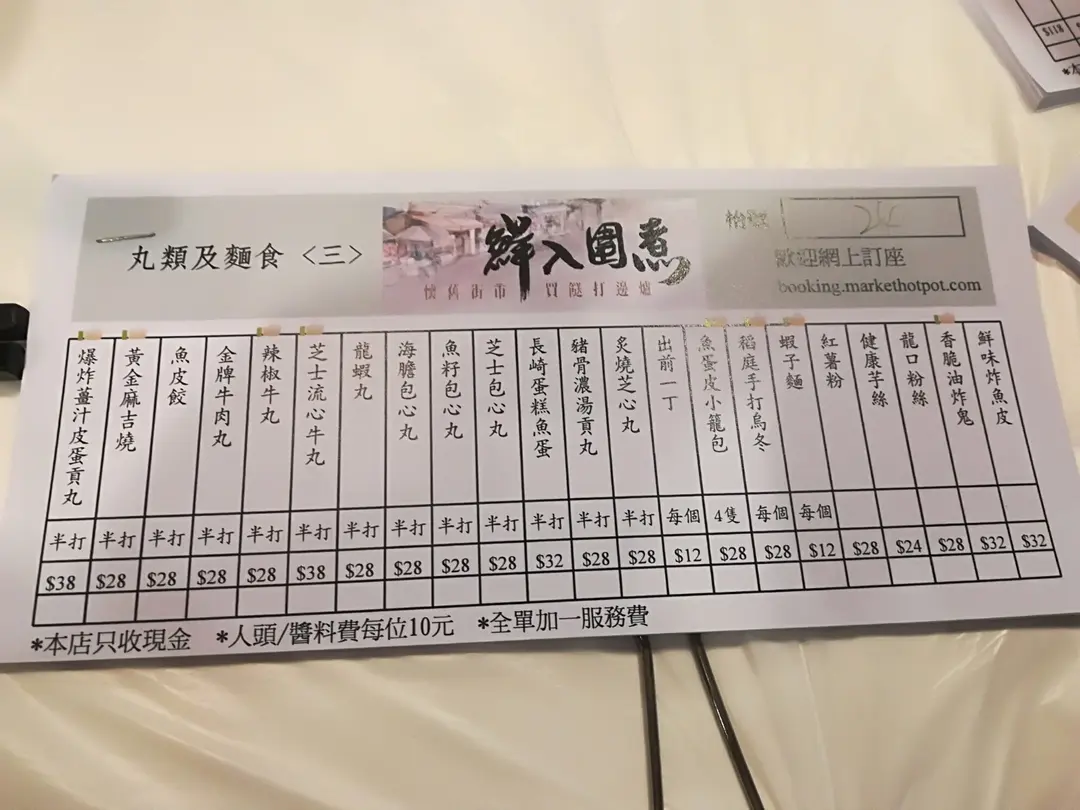 丸類及麵食〈三〉
鮮入圍煮
懷舊街市 買餸打邊爐
歡迎網上訂座
booking.markethotpot.com
爆炸薑汁皮蛋貢丸 半打 $38
黃金麻吉燒 半打 $28
魚皮餃 半打 $28
金牌牛肉丸 半打 $28
辣椒牛丸 半打 $28
芝士流心牛丸 半打 $38
龍蝦丸 半打 $28
海膽包心丸 半打 $28
魚籽包心丸 半打 $28
芝士包心丸 半打 $28
長崎蛋糕魚蛋 半打 $32
豬骨濃湯貢丸 半打 $28
炙燒芝心丸 半打 $28
出前一丁 每個 $12
魚蛋皮小籠包 4隻 $28
稻庭手打烏冬 每個 $28
蝦子麵 每個 $12
紅薯粉 $28
健康芋絲 $24
龍口粉絲 $28
香脆油炸鬼 $32
鮮味炸魚皮 $32
*本店只收現金 *人頭/醬料費每位10元 *全單加一服務費
$118